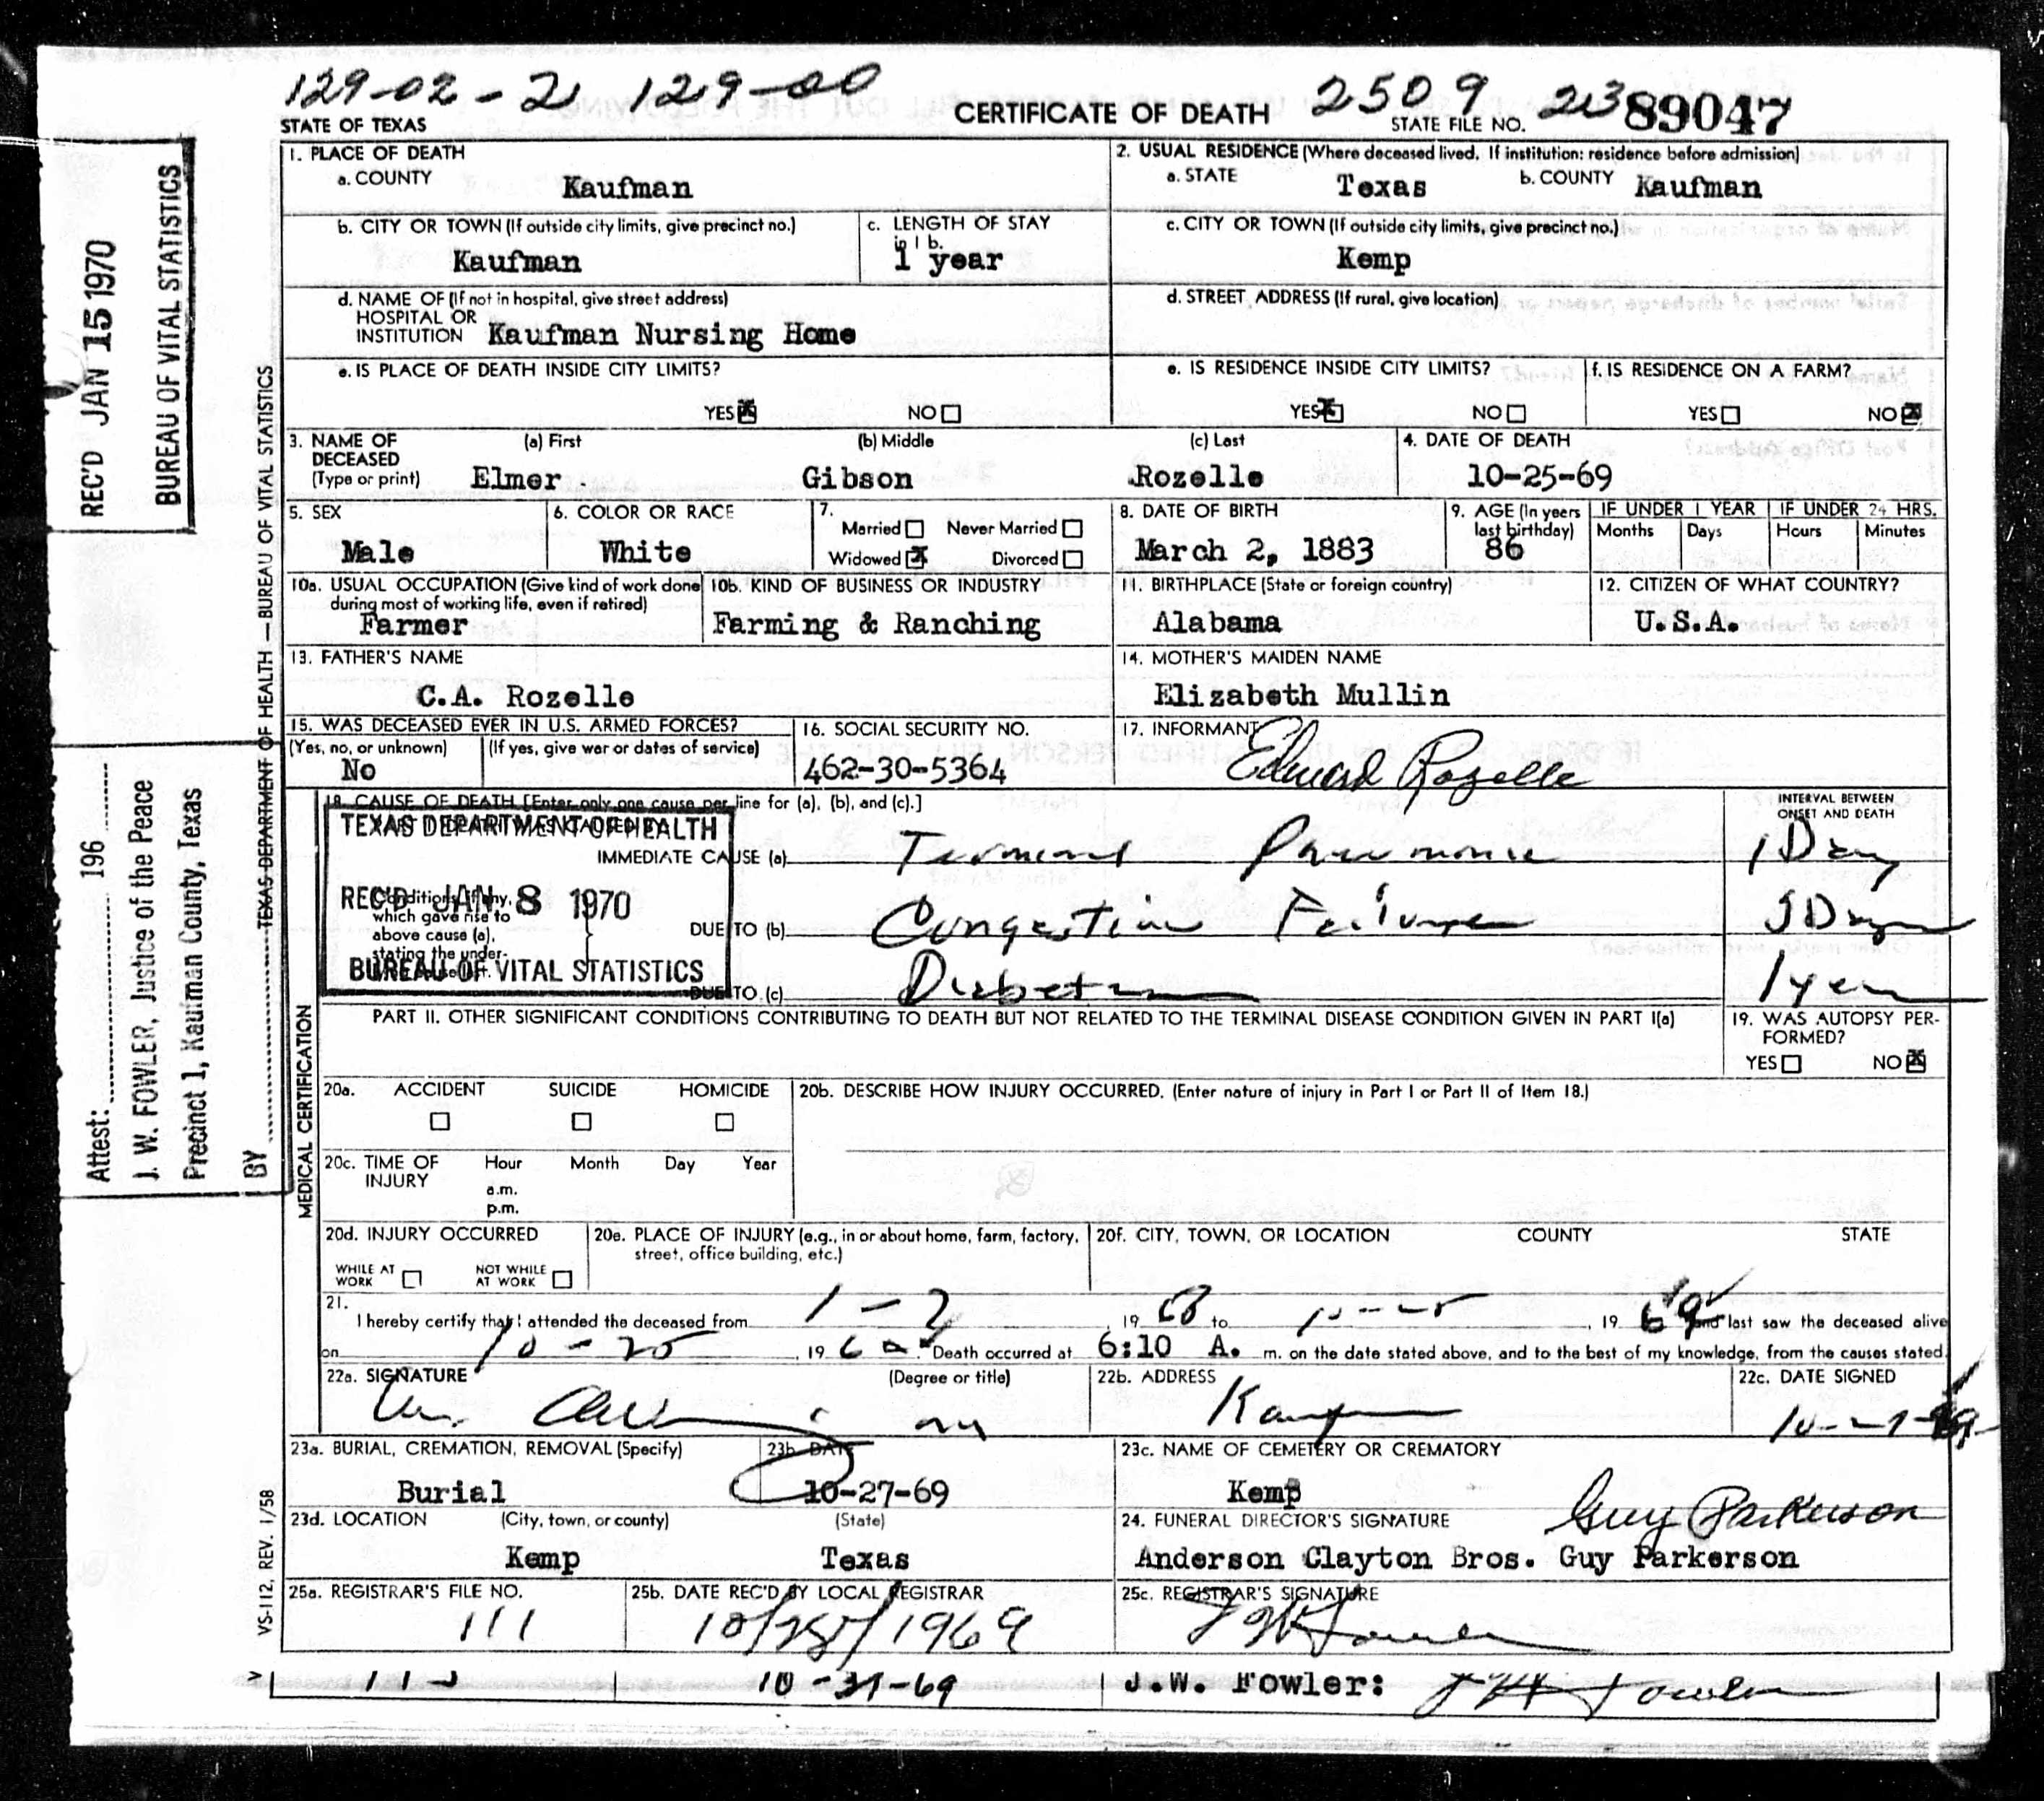 129-02-21 129-00
2509 23
STATE OF TEXAS
CERTIFICATE OF DEATH
STATE FILE NO. 89047
REC'D JAN 15 1970
BUREAU OF VITAL STATISTICS
TEXAS DEPARTMENT OF HEALTH — BUREAU OF VITAL STATISTICS
Attest: 196
J. W. FOWLER, Justice of the Peace
Precinct 1, Kaufman County, Texas
BY
1. PLACE OF DEATH
a. COUNTY
Kaufman
2. USUAL RESIDENCE (Where deceased lived. If institution: residence before admission)
a. STATE Texas b. COUNTY Kaufman
b. CITY OR TOWN (If outside city limits, give precinct no.)
Kaufman
c. LENGTH OF STAY
in 1 b.
1 year
c. CITY OR TOWN (If outside city limits, give precinct no.)
Kemp
d. NAME OF (If not in hospital, give street address)
HOSPITAL OR
INSTITUTION Kaufman Nursing Home
d. STREET ADDRESS (If rural, give location)
e. IS PLACE OF DEATH INSIDE CITY LIMITS?
YES X NO
e. IS RESIDENCE INSIDE CITY LIMITS?
YES X NO
f. IS RESIDENCE ON A FARM?
YES NO X
3. NAME OF
DECEASED
(Type or print)
(a) First (b) Middle (c) Last
Elmer Gibson Rozelle
4. DATE OF DEATH
10-25-69
5. SEX
Male
6. COLOR OR RACE
White
7.
Married Never Married
Widowed X Divorced
8. DATE OF BIRTH
March 2, 1883
9. AGE (In years
last birthday)
86
IF UNDER 1 YEAR IF UNDER 24 HRS.
Months Days Hours Minutes
10a. USUAL OCCUPATION (Give kind of work done
during most of working life, even if retired)
Farmer
10b. KIND OF BUSINESS OR INDUSTRY
Farming & Ranching
11. BIRTHPLACE (State or foreign country)
Alabama
12. CITIZEN OF WHAT COUNTRY?
U.S.A.
13. FATHER'S NAME
C.A. Rozelle
14. MOTHER'S MAIDEN NAME
Elizabeth Mullin
15. WAS DECEASED EVER IN U.S. ARMED FORCES?
(Yes, no, or unknown) (If yes, give war or dates of service)
No
16. SOCIAL SECURITY NO.
462-30-5364
17. INFORMANT
Edward Rozelle
MEDICAL CERTIFICATION
18. CAUSE OF DEATH [Enter only one cause per line for (a), (b), and (c).]
INTERVAL BETWEEN
ONSET AND DEATH
TEXAS DEPARTMENT OF HEALTH
REC'D JAN 8 1970
BUREAU OF VITAL STATISTICS
IMMEDIATE CAUSE (a) Terminal Pneumonia 1 Day
Conditions, if any,
which gave rise to
above cause (a),
stating the under-
DUE TO (b) Congestive Failure
DUE TO (c) Diabetes 1 year
PART II. OTHER SIGNIFICANT CONDITIONS CONTRIBUTING TO DEATH BUT NOT RELATED TO THE TERMINAL DISEASE CONDITION GIVEN IN PART I(a)
19. WAS AUTOPSY PER-
FORMED?
YES NO X
20a. ACCIDENT SUICIDE HOMICIDE
20b. DESCRIBE HOW INJURY OCCURRED. (Enter nature of injury in Part I or Part II of Item 18.)
20c. TIME OF
INJURY
Hour Month Day Year
a.m.
p.m.
20d. INJURY OCCURRED
WHILE AT
WORK
NOT WHILE
AT WORK
20e. PLACE OF INJURY (e.g., in or about home, farm, factory,
street, office building, etc.)
20f. CITY, TOWN, OR LOCATION COUNTY STATE
21.
I hereby certify that I attended the deceased from 1-2, 1968 to 10-25, 1969 and last saw the deceased alive
on 10-25, 1969. Death occurred at 6:10 A. m. on the date stated above, and to the best of my knowledge, from the causes stated.
22a. SIGNATURE (Degree or title)
22b. ADDRESS
Kaufman
22c. DATE SIGNED
23a. BURIAL, CREMATION, REMOVAL (Specify)
Burial
23b. DATE
10-27-69
23c. NAME OF CEMETERY OR CREMATORY
Kemp
23d. LOCATION (City, town, or county) (State)
Kemp Texas
24. FUNERAL DIRECTOR'S SIGNATURE
Guy Parkerson
Anderson Clayton Bros. Guy Parkerson
25a. REGISTRAR'S FILE NO.
111
25b. DATE REC'D BY LOCAL REGISTRAR
10/28/1969
25c. REGISTRAR'S SIGNATURE
J W Fowler
VS-112, REV. 1/58
10-31-69
J.W. Fowler: J W Fowler